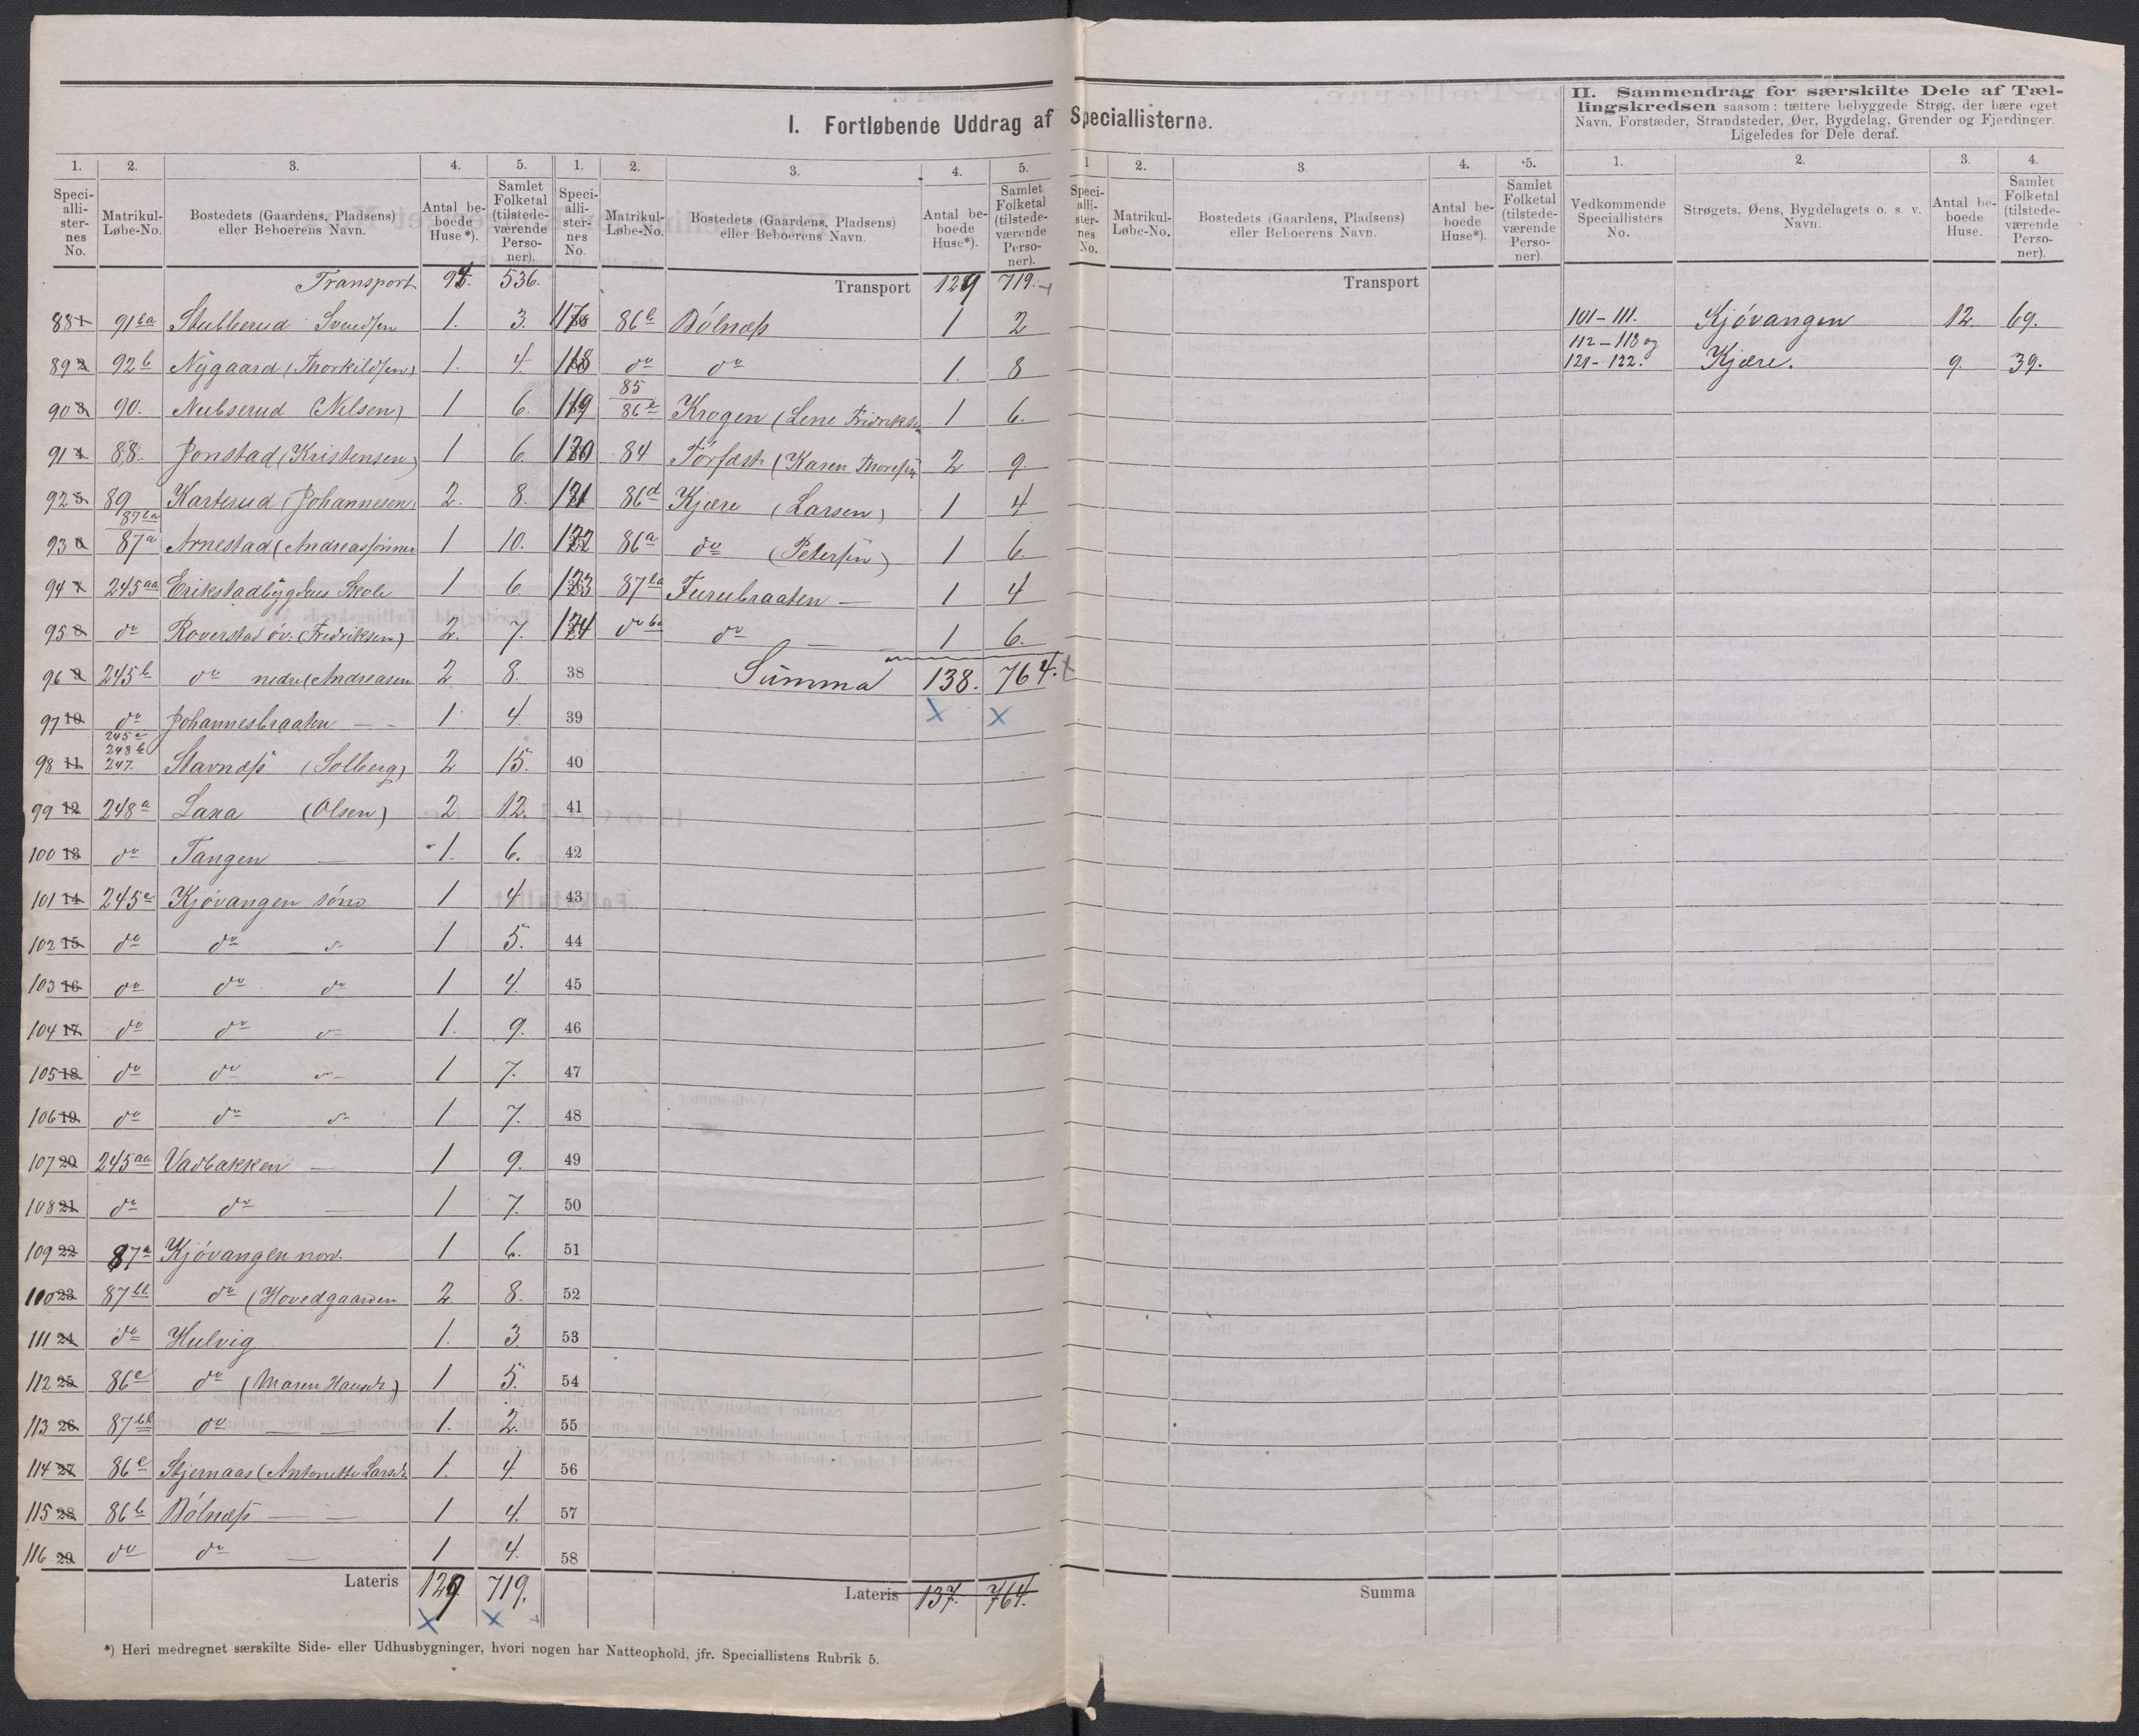 I. Fortløbende Uddrag af Speciallisterne.
II. Sammendrag for særskilte Dele af Tæl-
lingskredsen saasom: tættere bebyggede Strøg, der bære eget
Navn, Forstæder, Strandsteder, Øer, Bygdelag, Grender og Fjerdinger.
Ligeledes for Dele deraf.
1. 2. 3. 4. 5.
Speci-alli-ster-nes No. Matrikul-Løbe-No. Bostedets (Gaardens, Pladsens) eller Beboerens Navn. Antal be-boede Huse*). Samlet Folketal (tilstede-værende Perso-ner).
Transport 94. 536.
88 1 91 ba Stubberud Svendsen 1. 3.
89 2 92 b Nÿgaard (Thorkildsen) 1. 4.
90 3 90. Nubserud (Nilsen) 1 6.
91 4 88. Jonstad (Kristensen) 1 6
92 5 89 Karterud (Johannesen) 2. 8.
93 6 87 ba 87 a Arnestad (Andreassönner 1 10.
94 7 245 aa Erikstadbÿgdens Skole 1 6
95 8 do Roverstad öv: (Fredriksen) 2. 7.
96 9 245 b do nedre (Andreasen 2 8.
97 10 do Johannesbraaten 1 4.
98 11 245 c 248 b 247. Stavnæss (Solberg) 2 15.
99 12 248 a Laxa (Olsen) 2 12.
100 13 do Tangen 1. 6.
101 14 245 c Kjövangen sönd 1 4
102 15 do do do 1 5.
103 16 do do do 1 4.
104 17 do do do 1. 9.
105 18 do do do 1 7.
106 19 do do do 1 7.
107 20 245 aa Vadbakken 1 9.
108 21 do do 1 7.
109 22 87 a Kjövangen nord. 1 6.
110 23 87 bb do (Hovedgaarden 2 8.
111 24 do Hulvig 1. 3.
112 25 86 c do (Maren Hansdr) 1 5.
113 26 87 bb do 1. 2.
114 27 86 c Stjernaas (Antonette Larsdr 1. 4.
115 28 86 b Bölnæss 1 4.
116 29 do do 1 4.
Lateris 129. 719.
1. 2. 3. 4. 5.
Speci-alli-ster-nes No. Matrikul-Løbe-No. Bostedets (Gaardens, Pladsens) eller Beboerens Navn. Antal be-boede Huse*). Samlet Folketal (tilstede-værende Perso-ner).
Transport 129 719.
117 86 b Bölnæss 1 2
118 do do 1. 8
119 85 86 e Krogen (Lene Fridriksdr 1 6.
120 84 Torfæst (Karen Thoresen 2 9.
121 86 d Kjære (Larsen) 1 4
122 86 a do (Petersen) 1 6.
123 87 ba Furubraaten 1 4
124 do ba do 1 6.
38 Summa 138. 764.
39
40
41
42
43
44
45
46
47
48
49
50
51
52
53
54
55
56
57
58
Lateris 137. 764.
1 2. 3. 4. 5.
Speci-alli-ster-nes No. Matrikul-Løbe-No. Bostedets (Gaardens, Pladsens) eller Beboerens Navn. Antal be-boede Huse*). Samlet Folketal (tilstede-værende Perso-ner).
Transport
Summa
1. 2. 3. 4.
Vedkommende Speciallisters No. Strøgets, Øens, Bygdelagets o. s. v. Navn. Antal be-boede Huse. Samlet Folketal (tilstede-værende Perso-ner).
101 - 111. Kjövangen 12. 69.
112 - 113 og
121 - 122. Kjære. 9. 39.
*) Heri medregnet særskilte Side- eller Udhusbygninger, hvori nogen har Natteophold, jfr. Speciallistens Rubrik 5.